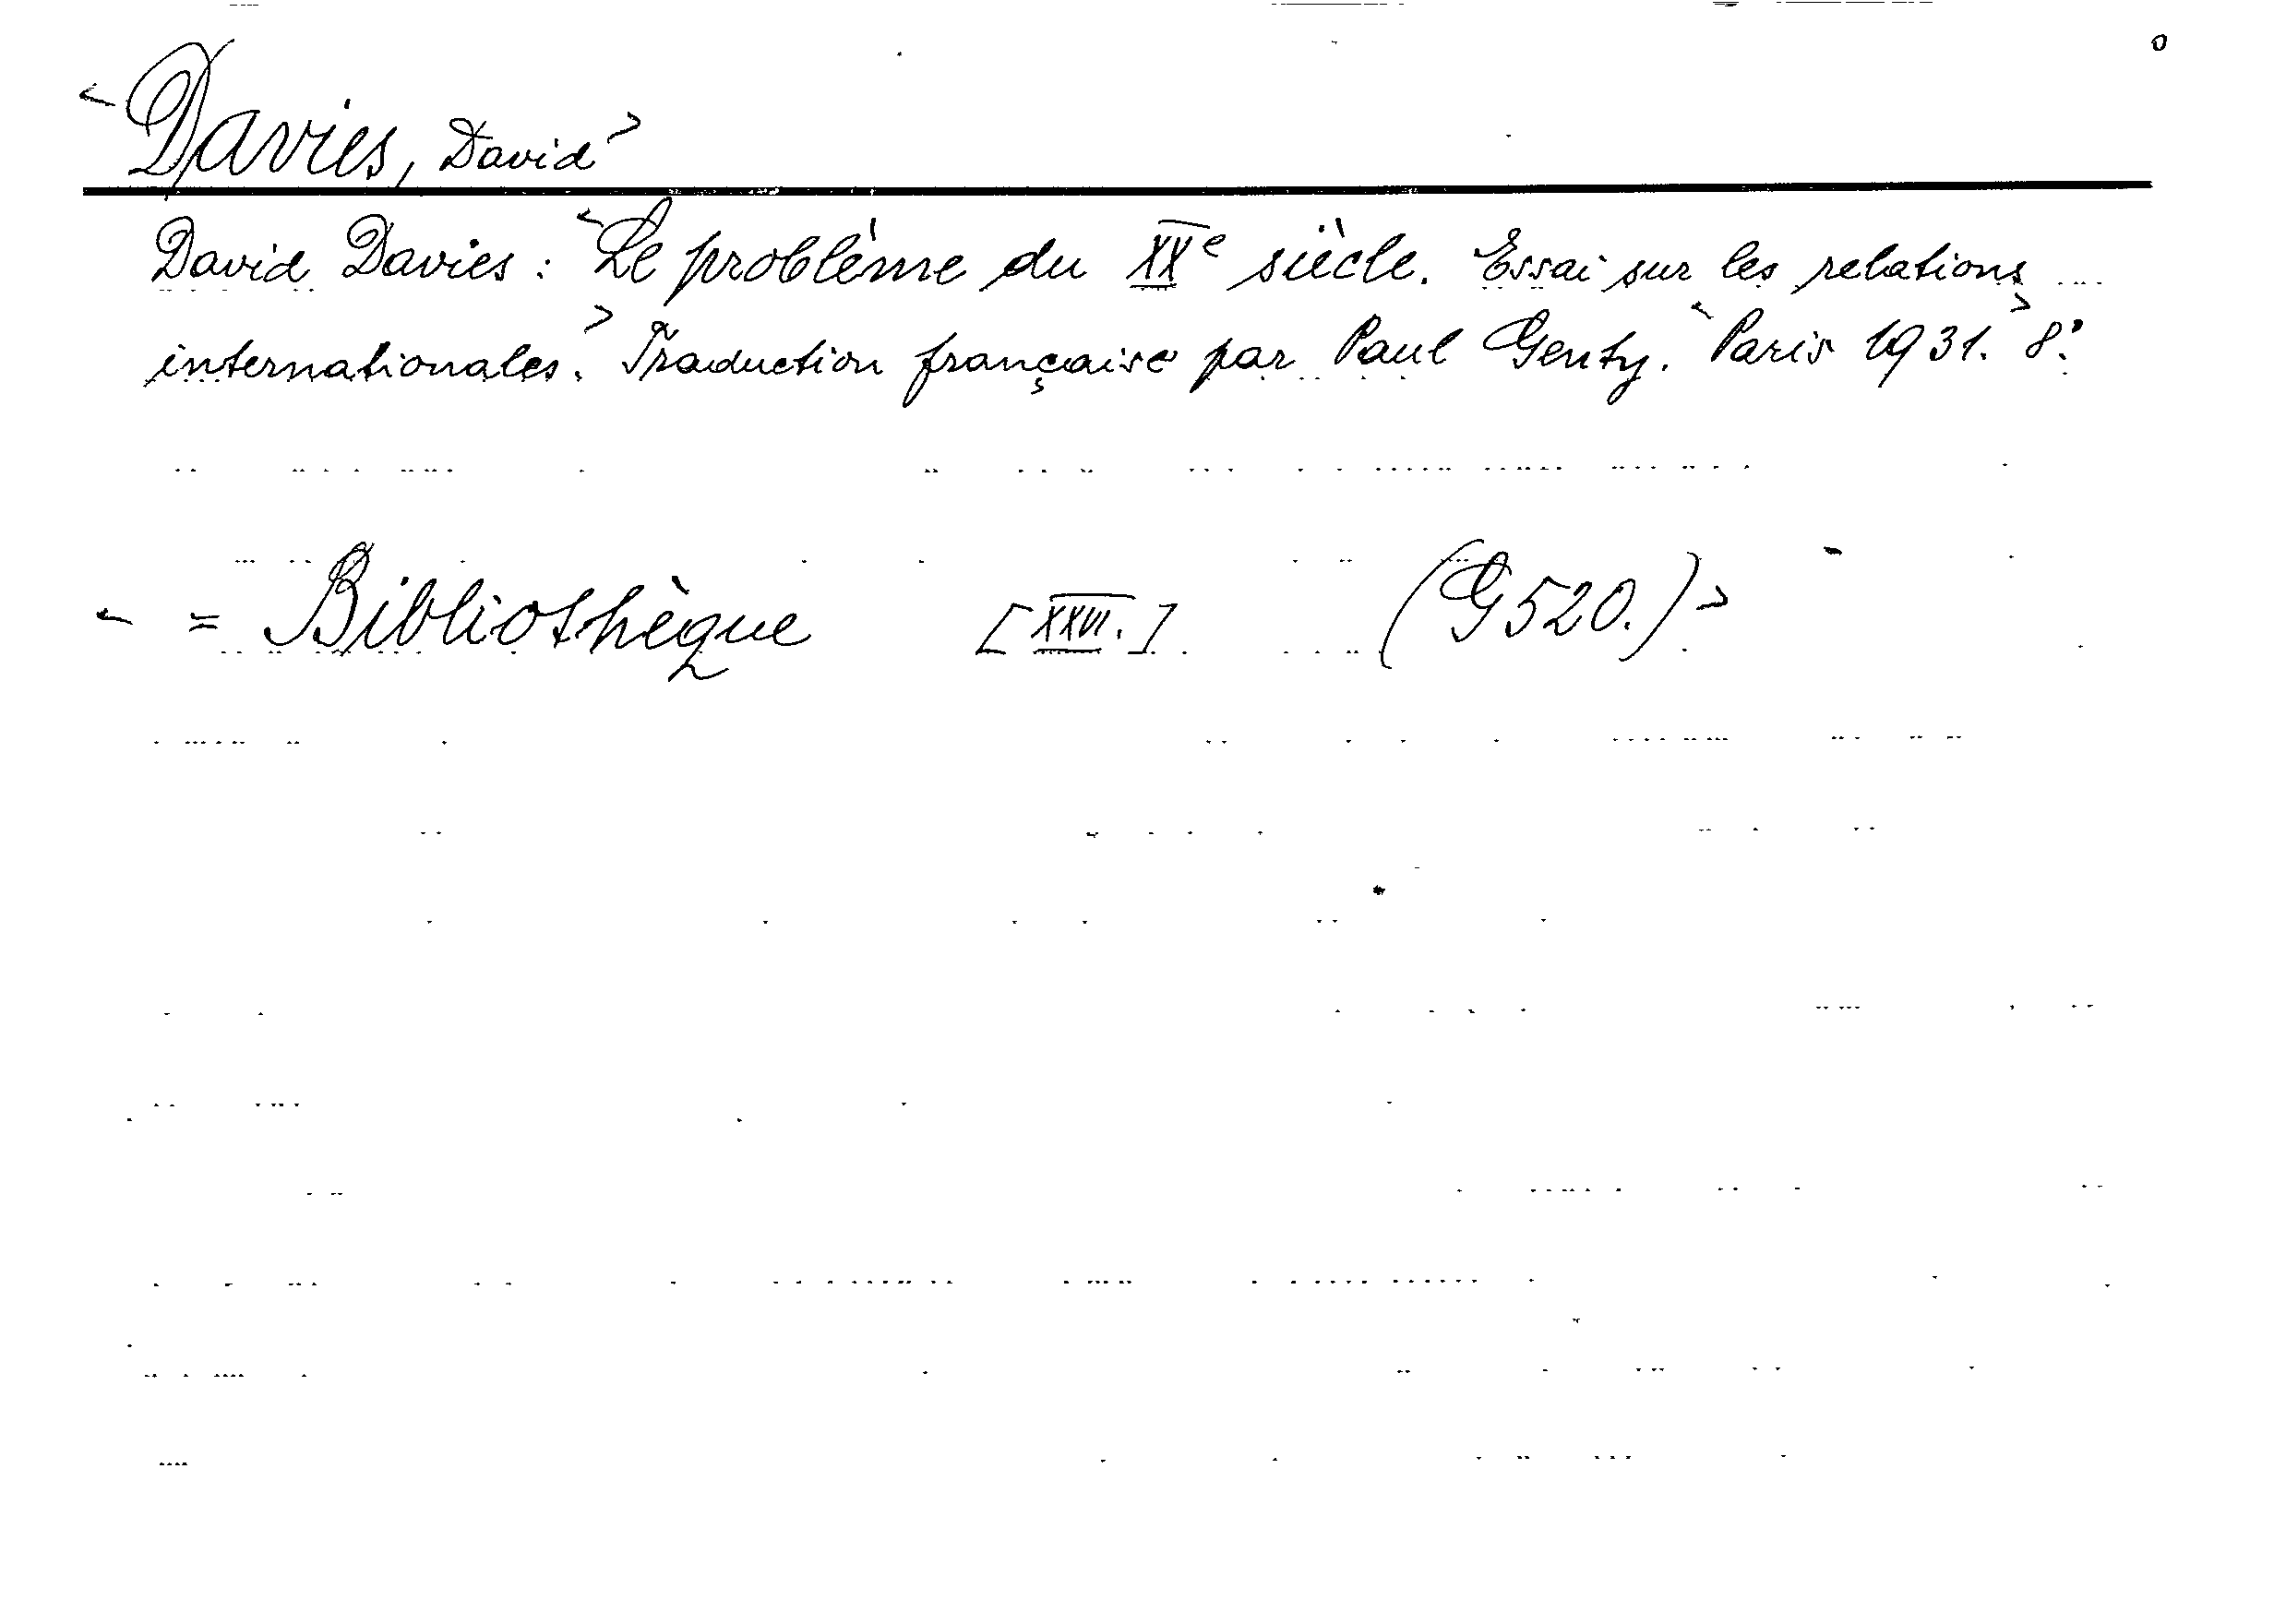 <Davies, David>
David Davies: <Le problème du XXe siècle. Essai sur les relations
internationales.> Traduction française par Paul Genty. <Paris 1931.> 8°.
< = Bibliothèque [XXVI.] (G 520.)>